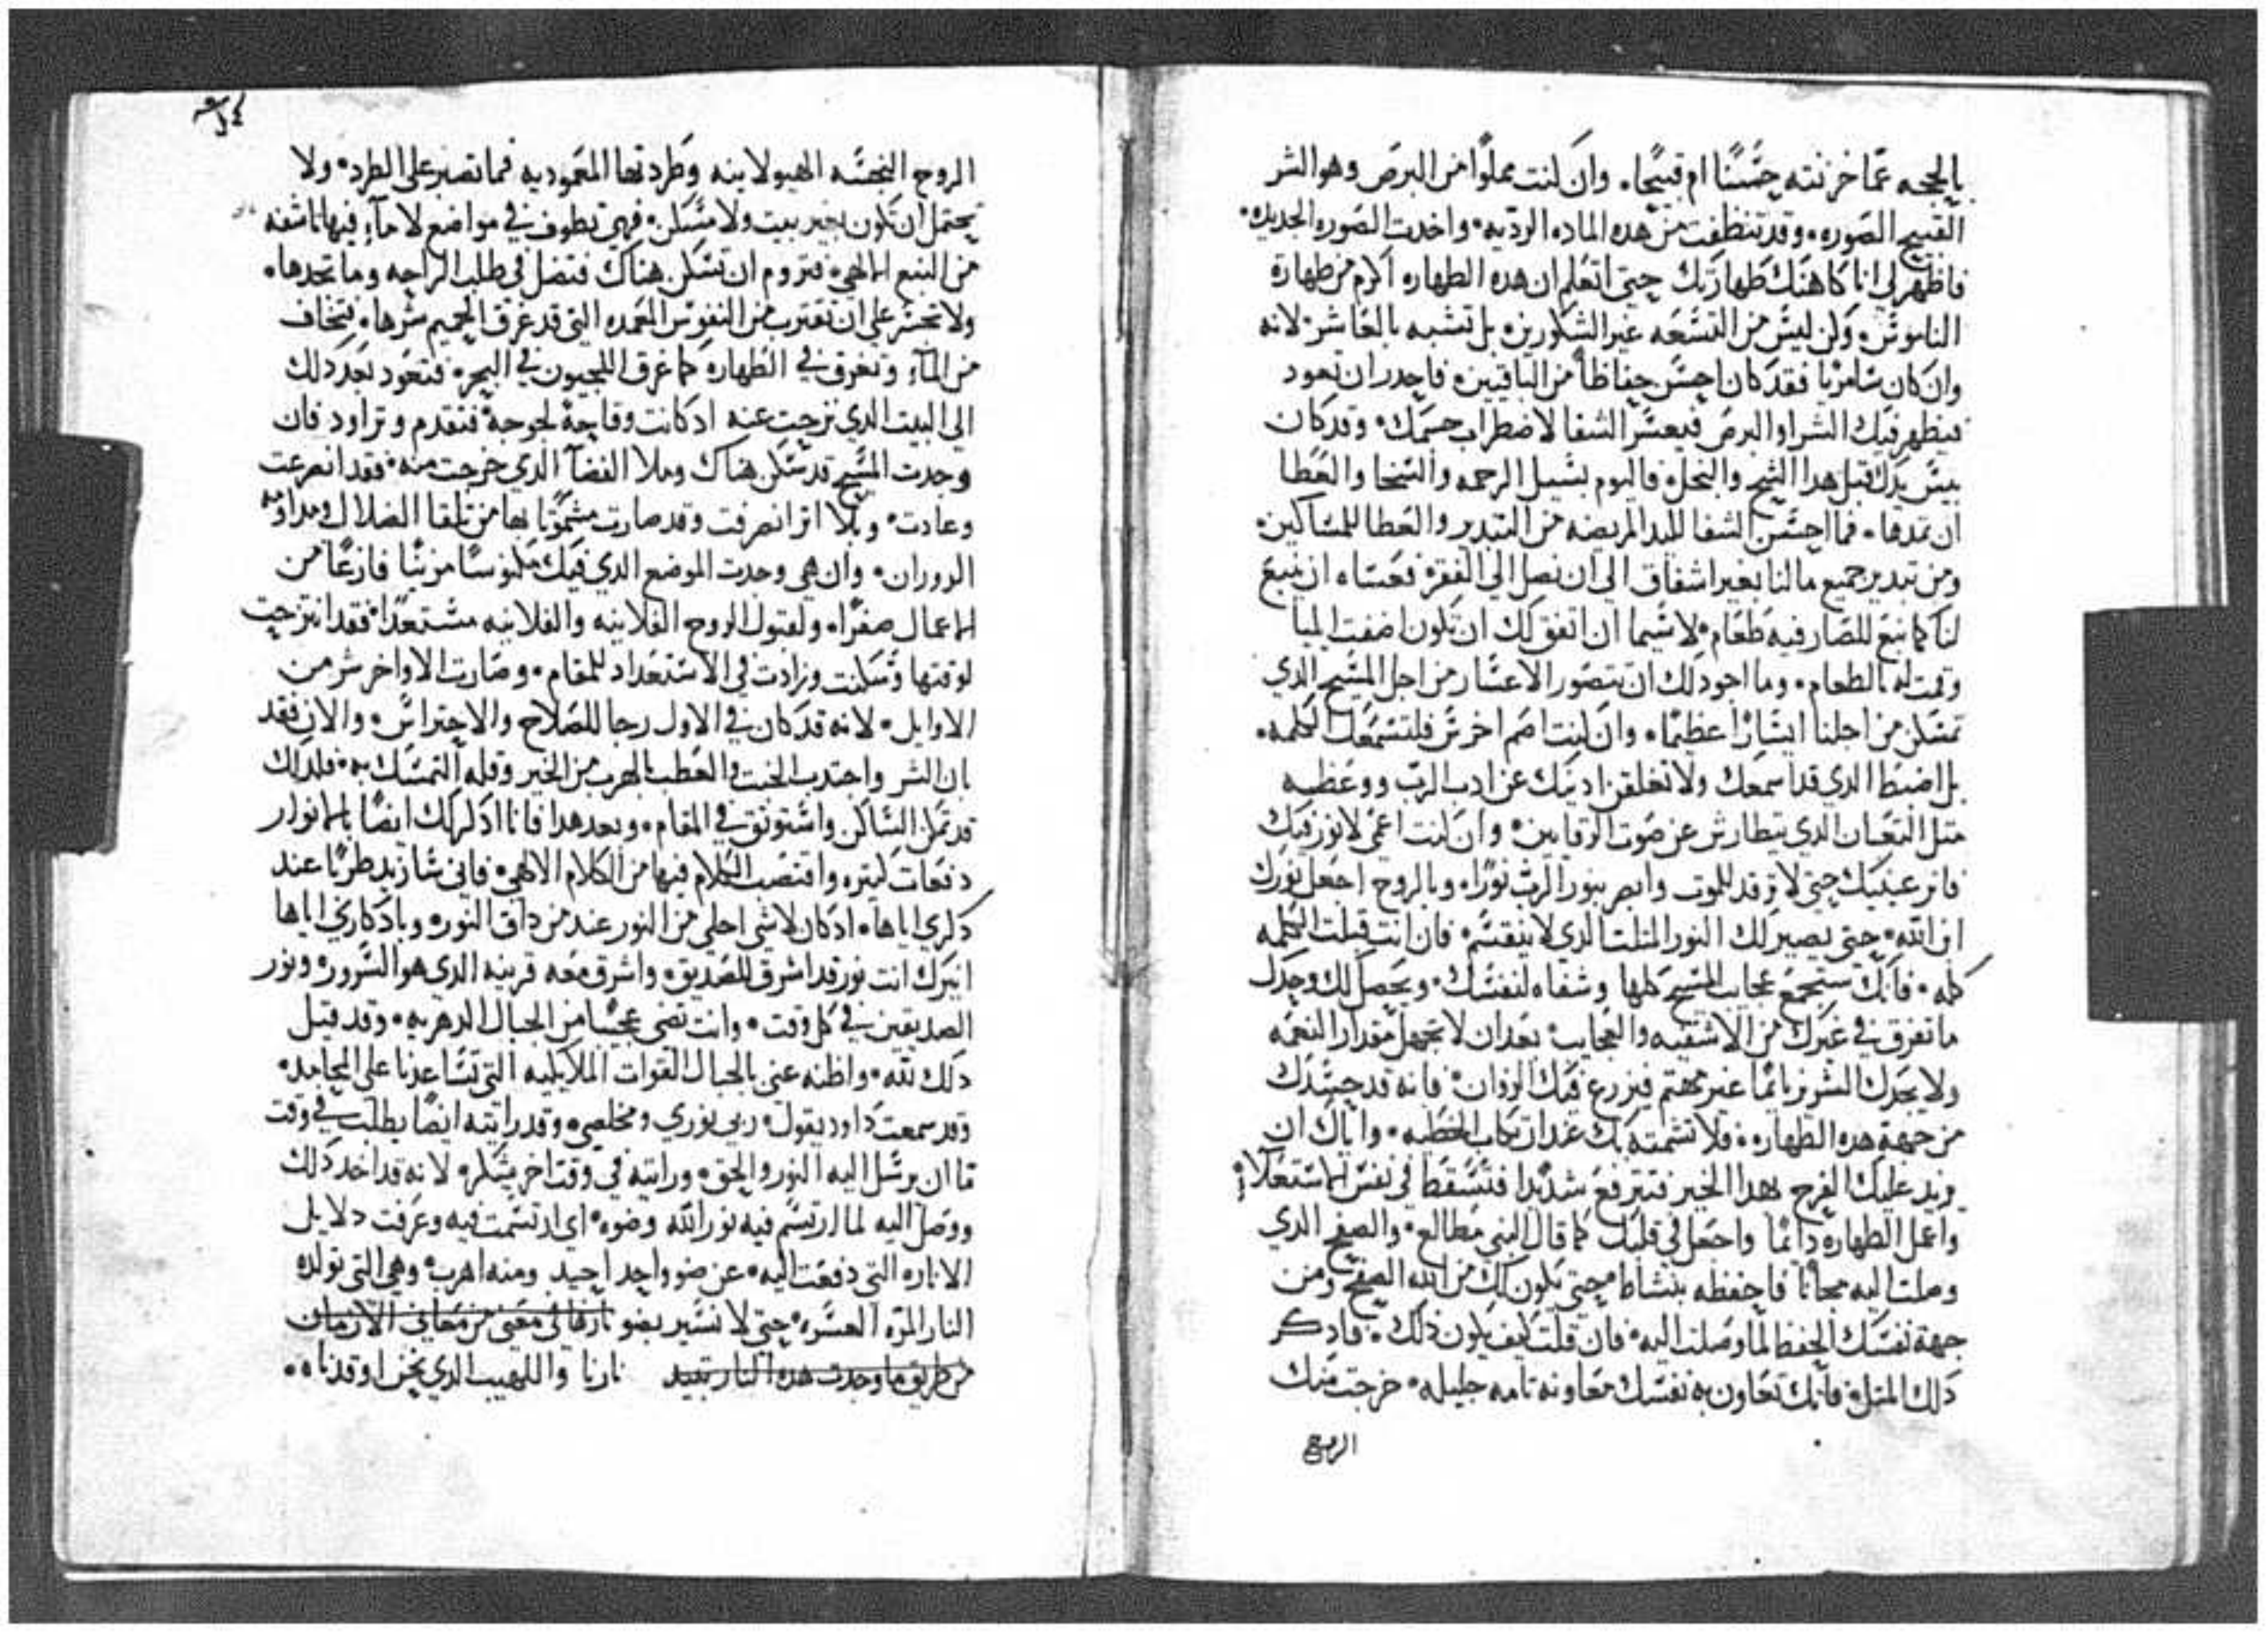 بالحجه عمّا خزنته حسنًا ام قبيحًا. وان كنت مملوًا من البرص وهو الشر
القبيح الصوره. وقد تنظفت من هده الماده الرديه. واخدت الصوره الجديده.
فاظهر لي انا كاهنك طهارتك حتى اتعلم ان هده الطهاره اكرم من طهارة
الناموس. وكن ليس من التسعه غير الشكورين. بل تشبه بالعاشر. لانه
وان كان سامريا فقد كان احسن حفاظًا من الباقيين. فاحدر ان تعود
فيظهر فيك الشر او البرص فيعسر الشفا لاضطراب جسمك. وقد كان
يبس يدك قبل هدا الشح والبخل. فاليوم بسبيل الرحمه والسخا والعطا
ان تمدها. فما احسن الشفا لليد المريضه من التبدير والعطا للمساكين.
ومن تبدير جميع مالنا بغير اشفاق الى ان نصل الى الفقر. فعساه ان ينبع
لنا كما نبع للصارفيه طعام. لاسيما ان اتفق لك ان تكون اضفت ايليا
وقمت له بالطعام. وما اجود لك ان تتصور الاعسار من اجل المسيح الدي
تمسكن من اجلنا ايسارًا عظيمًا. وان كنت اصم اخرس فلتسمعك الكلمه.
بل اضبط الدي قد اسمعك ولا تغلقن ادنيك عن ادب الرب ووعظه
متل التعبان الدي يتطارش عن صوت الرقايين. وان كنت اعمى لا نور فيك
فانر عينيك حتى لا ترقد للموت وابصر بنور الرب نورًا. وبالروح اجعل نورك
ابن الله. حتى يصير لك النور المتلت الدي لا ينقسم. فان انت قبلت الكلمه
كله. فانك ستجمع عجايب المسيح كلها وشفاه لنفسك. ويحصل لك وحدك
ما تفرق في غيرك من الاشفيه والعجايب. بعد ان لا تجهل مقدار النعمه
ولا يجدك الشرير نايمًا غير مهتم فيزرع فيك الزوان. فانه قد حسدك
من جهة هده الطهاره. فلا تشمته بك عند ارتكاب الخطيه. واياك ان
يزيد عليك الفرح بهدا الخير فتترفع شديدًا فتسقط في نفس الاستعلاء
واعمل الطهاره دايمًا واجعل في قلبك كما قال النبي مطالع. والصفح الدي
وصلت اليه مجانًا فاحفظه بنشاط. حتى يكون لك من الله الصفح ومن
جهة نفسك الحفظ لما وصلت اليه. فان قلت كيف يكون دلك. فادكر
دلك المتل. فانك تعاون به نفسك معاونه تامه جليله. خرجت منك
الروح
الروح النجسه الهيولانيه وطردتها المعموديه فما تصبر على الطرد. ولا
يحتمل ان تكون بغير بيت ولا مسكن. فهي تطوف في مواضع لا ماء فيها ناشفه
من النبع الالهي. فتروم ان تسكن هناك فتضل في طلب الراحه وما تجدها.
ولا تجسر على ان تقترب من النفوس المعمده التي قد غرق الحميم شرها. فتخاف
من الماء وتغرق في الطهاره كما غرق اللجيون في البحر. فتعود بعد دلك
الى البيت الدي نزحت عنه اد كانت وقاحة لجوجة فتقدم وتراود فان
وجدت المسيح قد سكن هناك وملا الفضا الدي خرجت منه. فقد انصرعت
وعادت. وبلا اتر انصرفت وقد صارت مشموتا بها من تلقا الضلال ومداومه
الدوران. وان هي وجدت الموضع الدي فيك مكنوسًا مزينًا فارغًا من
الاعمال صفرًا. ولقبول الروح الفلانيه والفلانيه مستعدًا. فقد انتزحت
لوقتها وسكنت وزادت في الاستعداد للمقام. وصارت الاواخر شر من
الاوايل. لانه قد كان في الاول رجا للصلاح والاحتراس. والان فقد
بان الشر واجتدب الخبت والعطب بالهرب من الخير وقله التمسك به. فلداك
قد تمكن الساكن واستوتق في المقام. وبعد هدا فانا ادكرك ايضًا بالانوار
دفعات كتيره واقتضب الكلام فيها من الكلام الالهي. فاني سازيد طربًا عند
دكري اياها. اد كان لا شي احلى من النور عند من داق النور. وبادكاري اياها
انيرك انت. نور قد اشرق للصديق. واشرق معه قرينه الدي هو السرور. ونور
الصديقين في كل وقت. وانت تضي عجيبًا من الجبال الدهريه. وقد قيل
دلك لله. واظنه عنى بالجبال القوات الملايكيه التي تساعدنا على المحامد.
وقد سمعت داود يقول. ربي نوري ومخلصي. وقد رايته ايضًا يطلب في وقت
ما ان يرسل اليه النور والحق. ورايته في وقت اخر يشكر. لانه قد اخد دلك
ووصل اليه لما ارتسم فيه نور الله وضوه. اي ارتسمت فيه وعرفت دلايل
الاناره التي دفعت اليه. عن ضو واحد احيد ومنه اهرب. وهي التي تولده
النار المرّه العسره. حتى لا نسير بضو نارها في معنى من معاني الازمان
من طريق ما وجدت هده النار تبيد نارنا واللهيب الدي نحن اوقدناه.